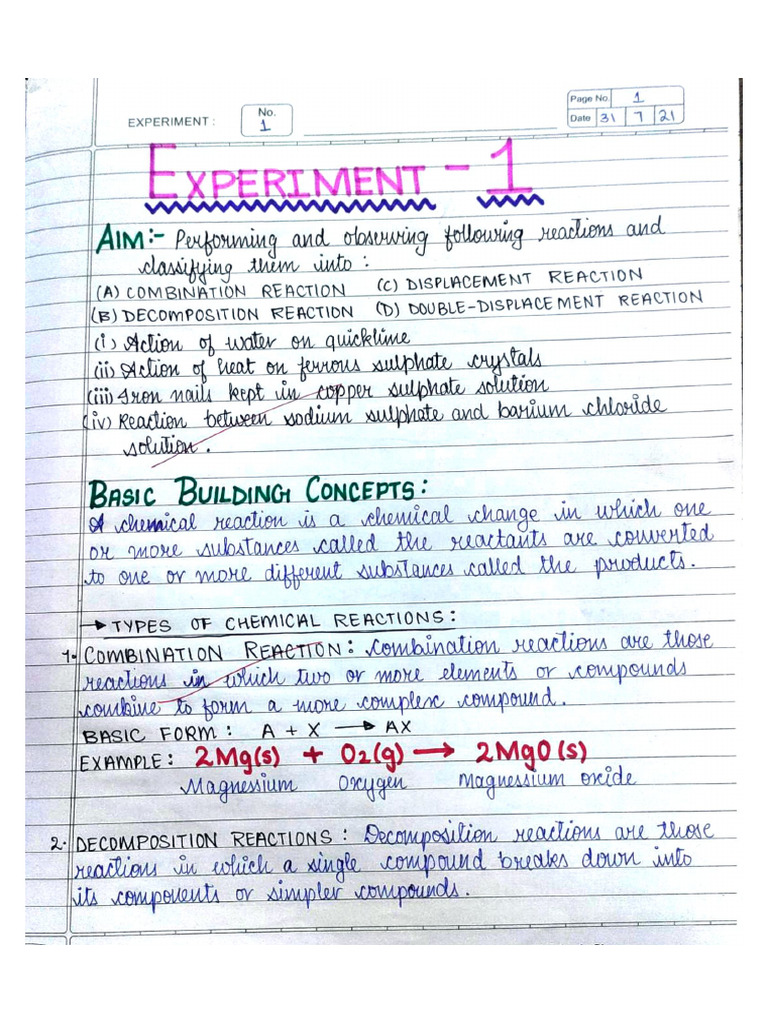 EXPERIMENT : No. 1 Page No. 1
Date 31 7 21
EXPERIMENT - 1
AIM:- Performing and observing following reactions and
classifying them into :
(A) COMBINATION REACTION (C) DISPLACEMENT REACTION
(B) DECOMPOSITION REACTION (D) DOUBLE-DISPLACEMENT REACTION
(i) Action of water on quicklime
(ii) Action of heat on ferrous sulphate crystals
(iii) Iron nails kept in copper sulphate solution
(iv) Reaction between sodium sulphate and barium chloride
solution.
BASIC BUILDING CONCEPTS:
A chemical reaction is a chemical change in which one
or more substances called the reactants are converted
to one or more different substances called the products.
→ TYPES OF CHEMICAL REACTIONS:
1. COMBINATION REACTION: Combination reactions are those
reactions in which two or more elements or compounds
combine to form a more complex compound.
BASIC FORM : A + X → AX
EXAMPLE: 2Mg(s) + O2(g) → 2MgO(s)
Magnessium Oxygen Magnessium oxide
2. DECOMPOSITION REACTIONS : Decomposition reactions are those
reactions in which a single compound breaks down into
its components or simpler compounds.